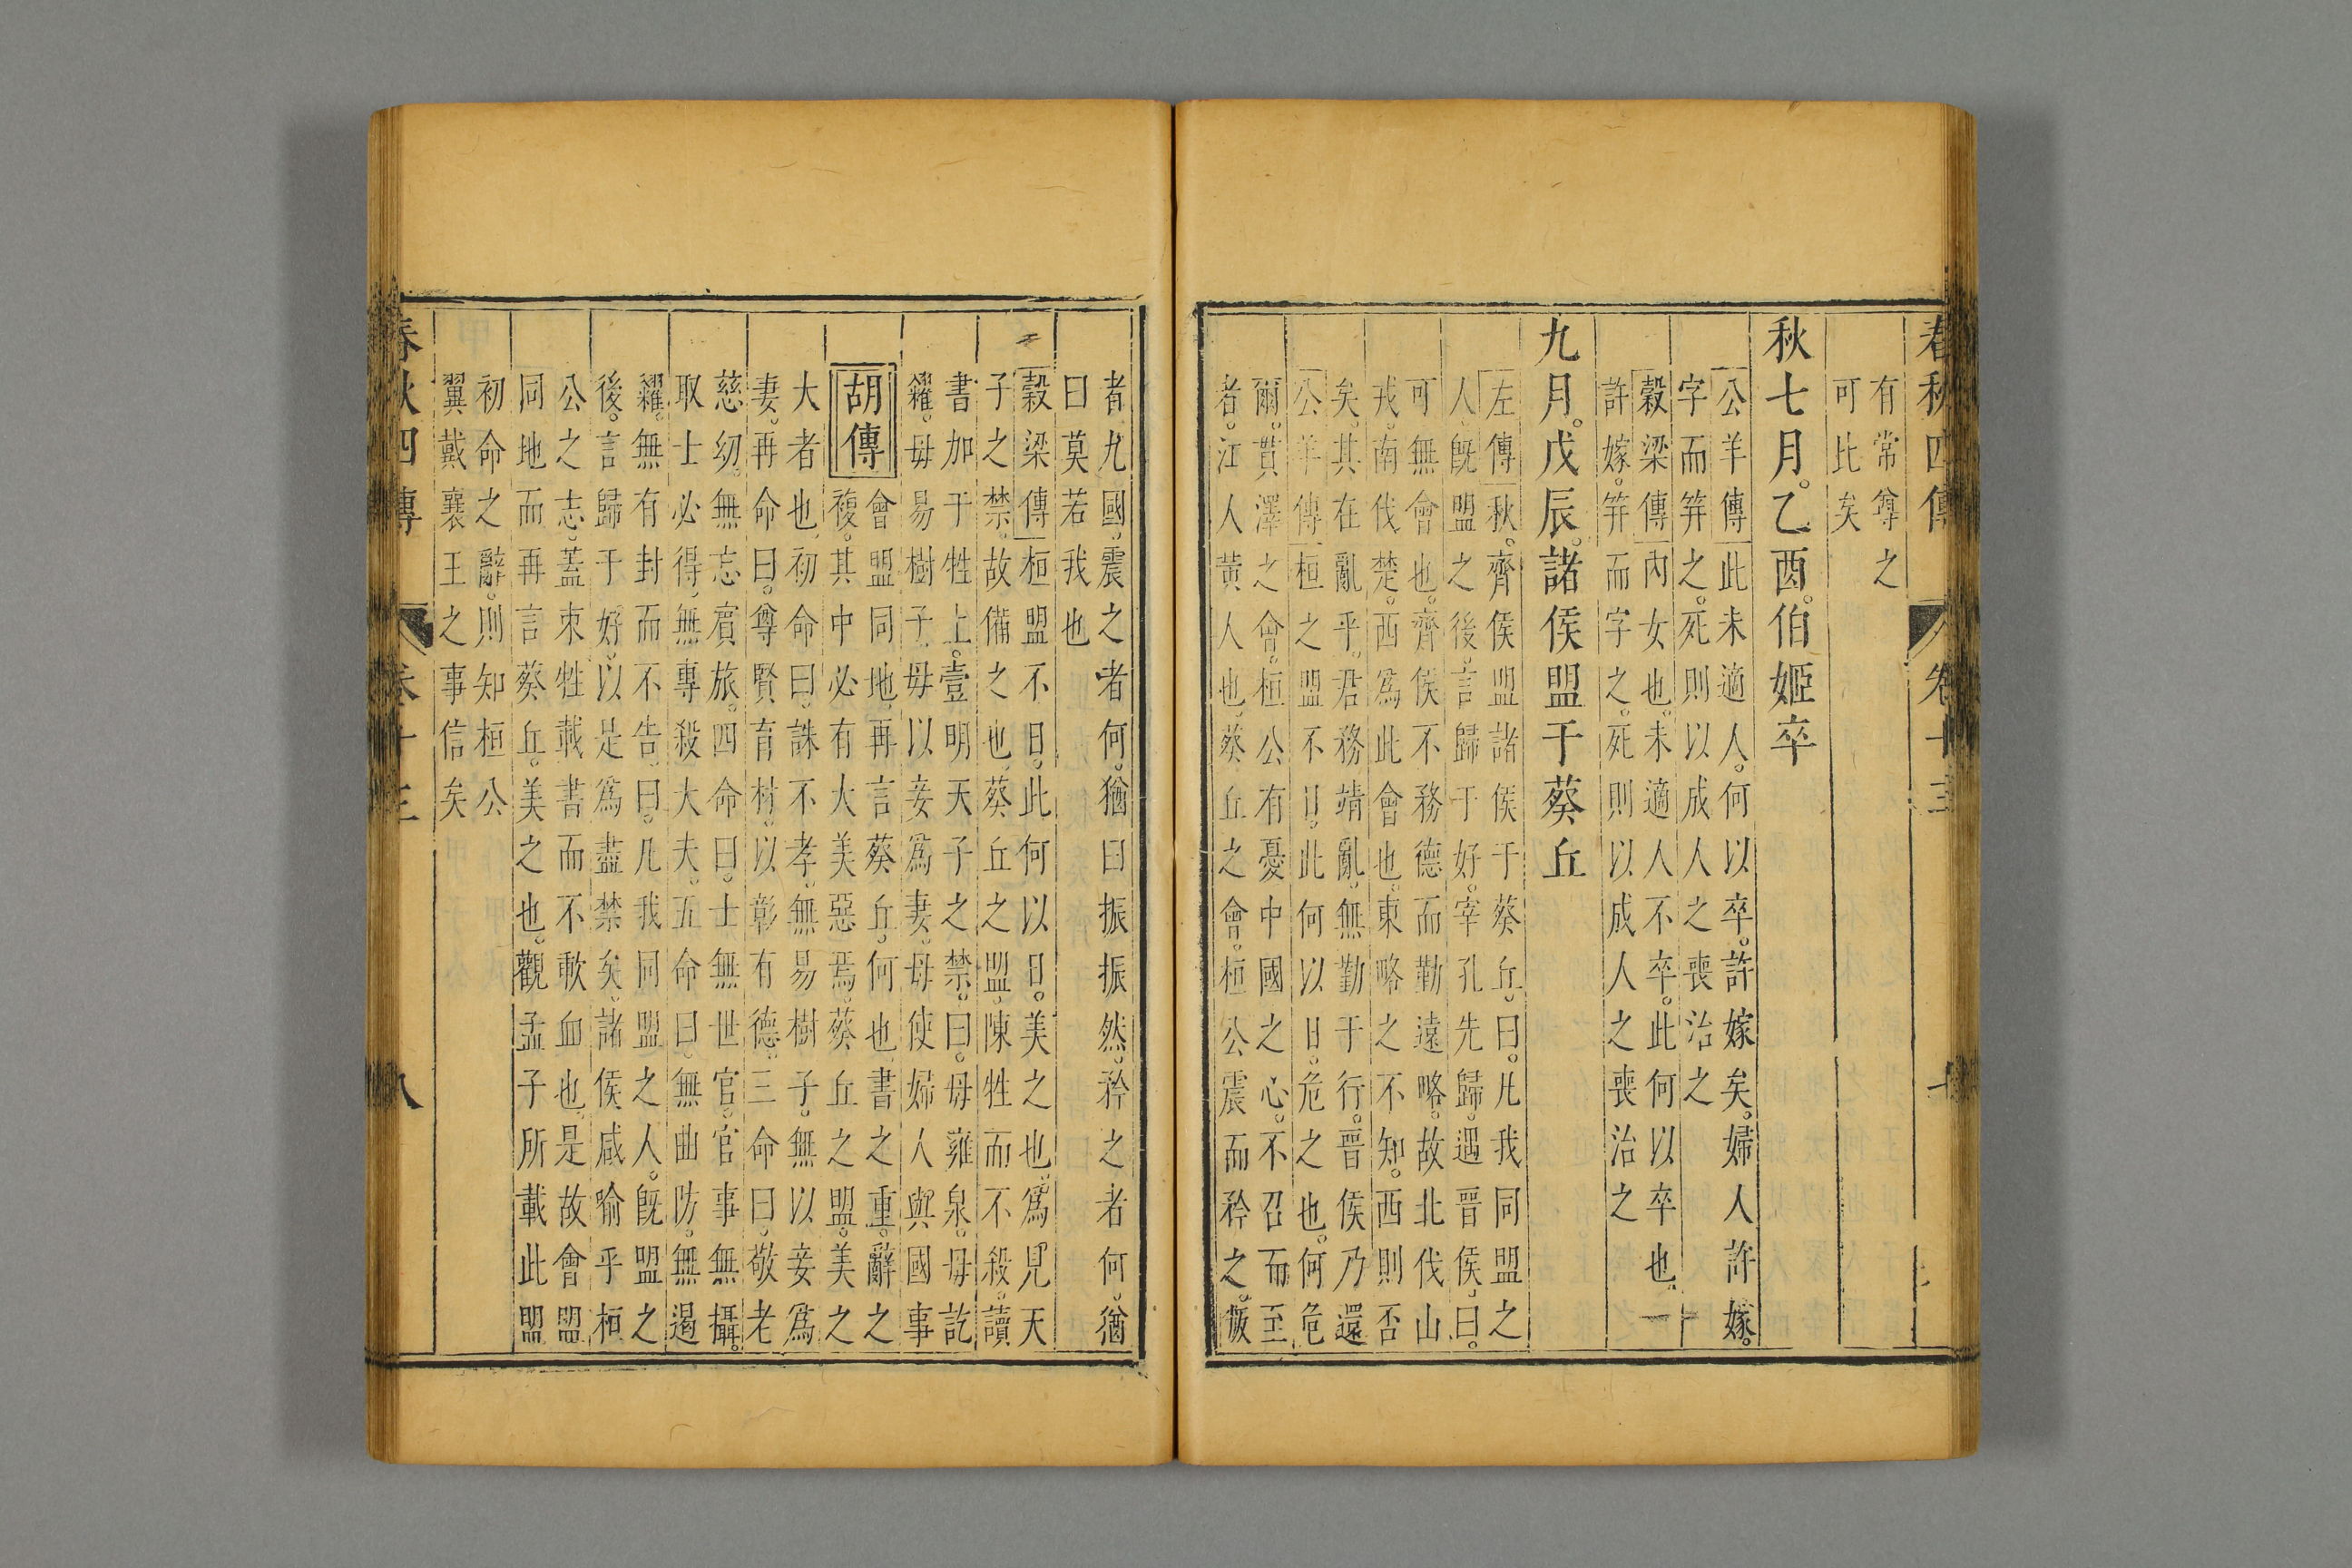 春秋四傳 卷十三
有常尊之
可比矣
秋七月。乙酉。伯姬卒
公羊傳此未適人。何以卒。許嫁矣。婦人許嫁。
字而笄之。死則以成人之喪治之
穀梁傳內女也。未適人不卒。此何以卒也。一
許嫁。笄而字之。死則以成人之喪治之
九月。戊辰。諸侯盟于葵丘
左傳秋。齊侯盟諸侯于葵丘。曰。凡我同盟之
人。旣盟之後。言歸于好。宰孔先歸。遇晉侯。曰。
可無會也。齊侯不務德而勤遠略。故北伐山
戎。南伐楚。西爲此會也。東略之不知。西則否
矣。其在亂乎。君務靖亂。無勤于行。晉侯乃還
公羊傳桓之盟不日。此何以日。危之也。何危
爾。貫澤之會。桓公有憂中國之心。不召而至
者。江人黃人也。葵丘之會。桓公震而矜之。叛
者九國。震之者何。猶曰振振然。矜之者何。猶
曰莫若我也
穀梁傳桓盟不日。此何以日。美之也。爲見天
子之禁。故備之也。葵丘之盟。陳牲而不殺。讀
書加于牲上。壹明天子之禁。曰。毋雍泉。毋訖
糴。毋易樹子。毋以妾爲妻。毋使婦人與國事
胡傳會盟同地。再言葵丘。何也。書之重。辭之
複。其中必有大美惡焉。葵丘之盟。美之
大者也。初命曰。誅不孝。無易樹子。無以妾爲
妻。再命曰。尊賢育材。以彰有德。三命曰。敬老
慈幼。無忘賓旅。四命曰。士無世官。官事無攝。
取士必得。無專殺大夫。五命曰。無曲防。無遏
糴。無有封而不告。曰。凡我同盟之人。旣盟之
後。言歸于好。以是爲盡禁矣。諸侯咸喻乎桓
公之志。蓋束牲載書而不歃血也。是故會盟
同地而再言葵丘。美之也。觀孟子所載此盟
初命之辭。則知桓公
翼戴襄王之事信矣
春秋四傳 卷十三 八